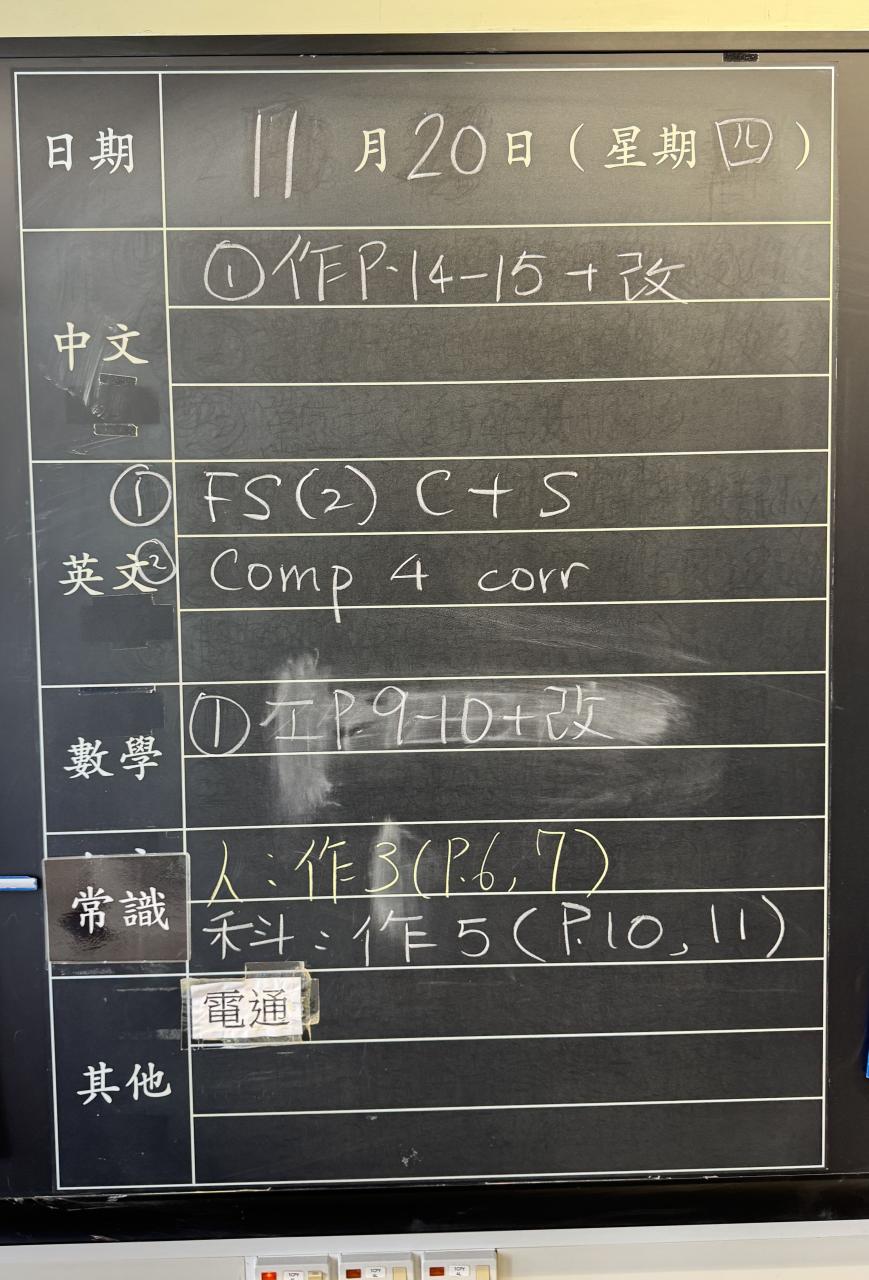 日期 11月20日(星期四)
中文 ①作P.14-15+改
① FS(2) C+S
英文 ② Comp 4 corr
數學 ①工P9-10+改
人:作3(P.6,7)
常識
科:作5(P.10,11)
電通
其他